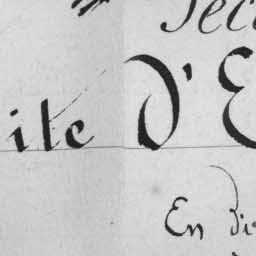 Sec
ite D'E
En di